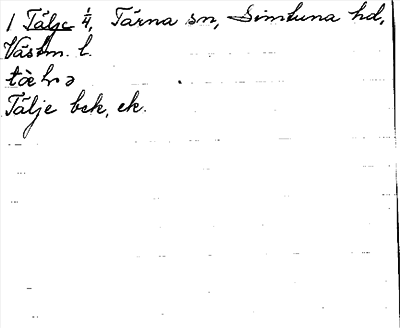 1 Tälje 1/4, Tärna sn, Simtuna hd,
Västm. l.
Tälje bsk, ek.